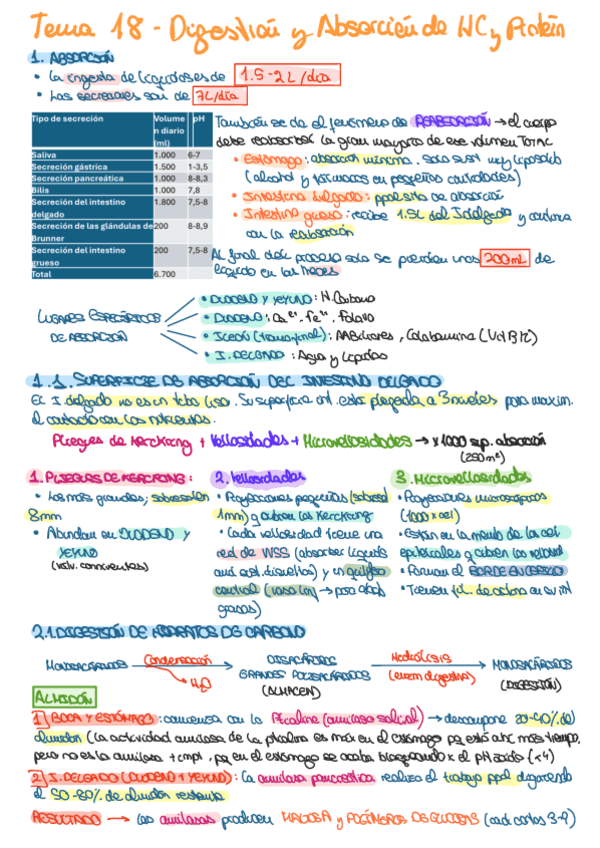 Tema 18 - Digestión y Absorción de HC y Protein
1. ABSORCIÓN
• La ingesta de líquidos es de 1.5-2L/día
• Las secreciones son de 7L/día
Tipo de secreción Volumen diario (ml) pH
Saliva 1.000 6-7
Secreción gástrica 1.500 1-3,5
Secreción pancreática 1.000 8-8,3
Bilis 1.000 7,8
Secreción del intestino delgado 1.800 7,5-8
Secreción de las glándulas de Brunner 200 8-8,9
Secreción del intestino grueso 200 7,5-8
Total 6.700
También se da el fenómeno de REABSORCIÓN → el cuerpo
debe reabsorber la gran mayoría de ese volumen total
• Estómago: absorción mínima. Solo sust muy liposolub
(alcohol y fármacos en pequeñas cantidades)
• Intestino delgado: ppal sitio de absorción
• Intestino grueso: recibe 1.5L del I.delgado y continua
con la reabsorción
Al final del proceso solo se pierden unos 200mL de
líquido en las heces
LUGARES ESPECÍFICOS
DE ABSORCIÓN
• DUODENO Y YEYUNO: H. Carbono
• DUODENO: Ca²⁺, Fe²⁺, Folato
• ILEON (terminal): AABiliares, Cobalamina (Vit B12)
• I. DELGADO: Agua y Lípidos
1.1. SUPERFICIE DE ABSORCIÓN DEL INTESTINO DELGADO
El I. delgado no es un tubo liso. Su superficie int. está plegada a 3 niveles para maxim.
el contacto con los nutrientes.
Pliegues de Kerckring + Vellosidades + Microvellosidades → x1000 sup. absorción
(250m²)
1. PLIEGUES DE KERCRING:
• Los más grandes; sobresalen
8mm
• Abundan en DUODENO y
YEYUNO
(valv. conniventes)
2. Vellosidades
• Proyecciones pequeñas (sobresal
1mm) y cubren las Kerckring
• Cada vellosidad tiene una
red de VVSS (absorber líquido
and sist.
y un quilífero
central (vaso linf) → para absb
grasas)
3. Microvellosidades
• Proyecciones microscópicas
(1000 x cel)
• Están en la memb de las cel
epiteliales y cubren las vellosid
• Forman el BORDE EN CEPILLO
• Tienen fil. de actina en su int
2.1. DIGESTIÓN DE HIDRATOS DE CARBONO
MONOSACÁRIDOS Condensación H₂O DISACÁRIDOS
GRANDES POLISACÁRIDOS
(ALMACEN) Hidrólisis
(enzim digestiva) MONOSACÁRIDOS
(DIGESTIÓN)
ALMIDÓN
1) BOCA Y ESTÓMAGO: comienza con la Ptialina (amilasa salival) → descompone 20-40% del
almidón (la actividad amilasa de la ptialina es más en el estómago pq está ahí más tiempo,
pero no es la amilasa + impt, pq en el estómago se acaba bloqueando x el pH ácido (<4)
2) I. DELGADO (DUODENO + YEYUNO): La amilasa pancreática realiza el trabajo ppal digiriendo
el 50-80% de almidón restante
RESULTADO → las amilasas producen MALTOSA y POLÍMEROS DE GLUCOSA (cad. cortas 3-9)